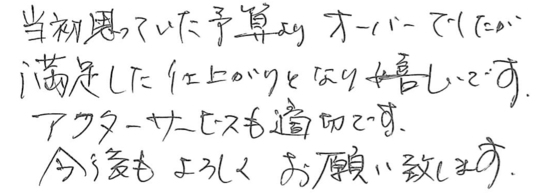 当初思っていた予算より オーバーでしたが
満足した仕上がりとなり嬉しいです.
アフターサービスも適切です.
今後も よろしく お願い致します.